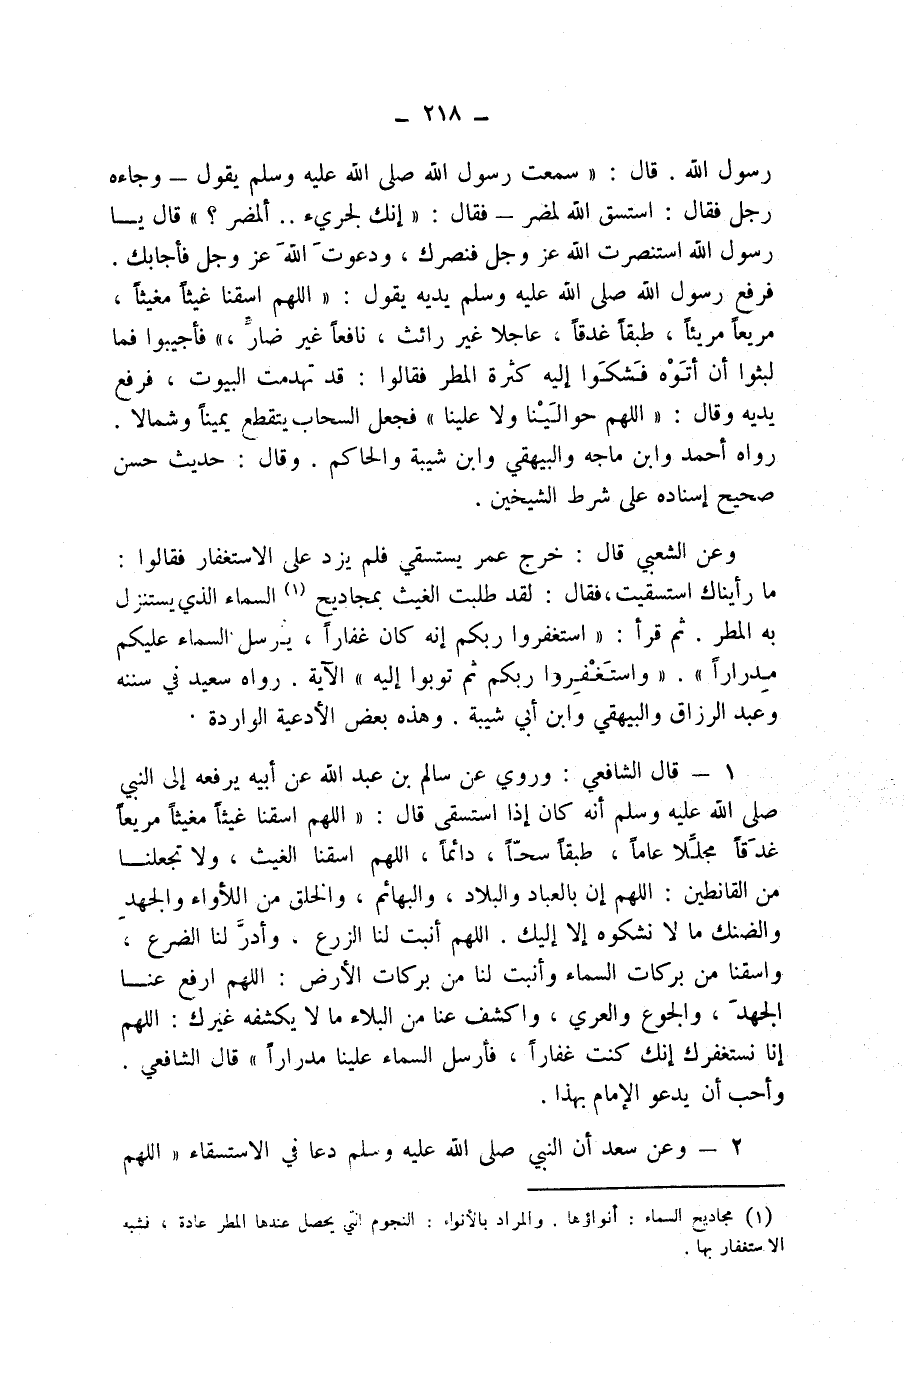 ـ ٢١٨ ـ
رسول الله . قال : « سمعت رسول الله صلى الله عليه وسلم يقول ــ وجاءه
رجل فقال : استسق الله لمضر ــ فقال : « إنك لجريء .. ألمضر ؟ » قال يــا
رسول الله استنصرت الله عز وجل فنصرك ، ودعوتَ اللهَ عز وجل فأجابك .
فرفع رسول الله صلى الله عليه وسلم يديه يقول : « اللهم اسقنا غيثاً مغيثاً ،
مريعاً مريئاً ، طبقاً غدقاً ، عاجلا غير رائث ، نافعاً غير ضارٍّ ،» فأجيبوا فما
لبثوا أن أتَوْه فَشكَوا إليه كثرة المطر فقالوا : قد تهدمت البيوت ، فرفع
يديه وقال : « اللهم حوالَيْنا ولا علينا » فجعل السحاب يتقطع يميناً وشمالا .
رواه أحمد وابن ماجه والبيهقي وابن شيبة والحاكم . وقال : حديث حسن
صحيح إسناده على شرط الشيخين .
وعن الشعبي قال : خرج عمر يستسقي فلم يزد على الاستغفار فقالوا :
ما رأيناك استسقيت،فقال : لقد طلبت الغيث بمجاديح (١) السماء الذي يستنزل
به المطر . ثم قرأ : « استغفروا ربكم إنه كان غفاراً ، يرسل السماء عليكم
مِدراراً » . « واستَغْفِروا ربكم ثم توبوا إليه » الآية . رواه سعيد في سننه
وعبد الرزاق والبيهقي وابن أبي شيبة . وهذه بعض الأدعية الواردة .
١ ــ قال الشافعي : وروي عن سالم بن عبد الله عن أبيه يرفعه إلى النبي
صلى الله عليه وسلم أنه كان إذا استسقى قال : « اللهم اسقنا غيثاً مغيثاً مريعاً
غدَقاً مجلَّلا عاماً ، طبقاً سحّاً ، دائماً ، اللهم اسقنا الغيث ، ولا تجعلنــا
من القانطين : اللهم إن بالعباد والبلاد ، والبهائم ، والخلق من اللأواء والجهدِ
والضنك ما لا نشكوه إلا إليك . اللهم أنبت لنا الزرع . وأدرَّ لنا الضرع ،
واسقنا من بركات السماء وأنبت لنا من بركات الأرض : اللهم ارفع عنــا
الجهدَ ، والجوع والعري ، واكشف عنا من البلاء ما لا يكشفه غيرك : اللهم
إنا نستغفرك إنك كنت غفاراً ، فأرسل السماء علينا مدراراً » قال الشافعي .
وأحب أن يدعو الإمام بهذا .
٢ ــ وعن سعد أن النبي صلى الله عليه وسلم دعا في الاستسقاء « اللهم
(١) مجاديح السماء : أنواؤها . والمراد بالأنواء : النجوم التي يحصل عندها المطر عادة ، فشبه
الاستغفار بها .